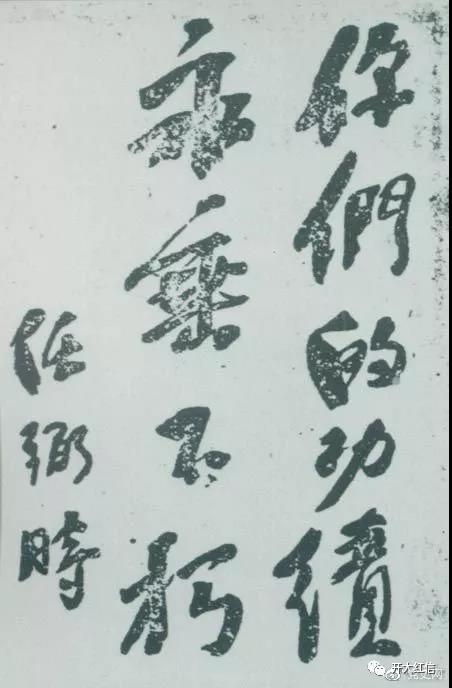 你們的功績
永垂不朽
任弼時
开大红信